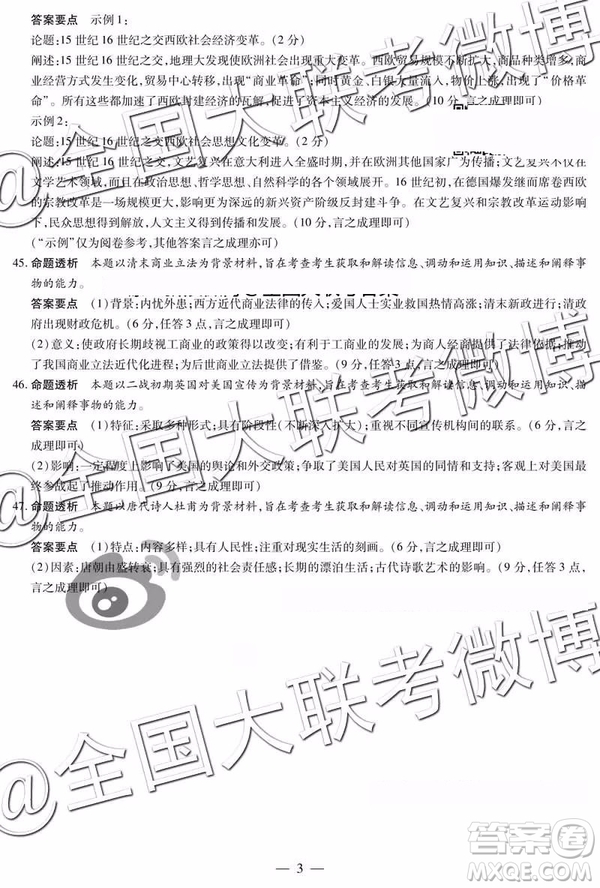 答案要点 示例1：
论题：15世纪16世纪之交西欧社会经济变革。（2分）
阐述：15世纪16世纪之交，地理大发现使欧洲社会经济出现了重大变革。西欧贸易规模不断扩大，商品种类增多；商
业经营方式发生变化，贸易中心转移，出现“商业革命”；同时黄金、白银大量流入，物价上涨，出现了“价格革
命”。所有这些都加速了西欧封建制度的瓦解，促进了资本主义经济的发展。（10分，言之成理即可）
示例2：
论题：15世纪16世纪之交西欧社会思想文化变革。（2分）
阐述：15世纪16世纪之交，文艺复兴在意大利进入全盛时期，并在欧洲其他国家广为传播；文艺复兴不仅在
文学艺术领域，而且在政治思想、哲学思想、自然科学等的各个领域展开。16世纪初，在德国爆发继而席卷西欧
的宗教改革是一场规模更大、影响更为深远的新兴资产阶级反封建斗争。在文艺复兴和宗教改革运动影响
下，民众思想得到解放，人文主义得以传播。（10分，言之成理即可）
（“示例”仅为阅卷参考，其他答案言之成理亦可）
45.命题透析 本题以清末商业立法为背景材料，旨在考查考生获取和解读信息、调动和运用知识、描述和阐释事
物的能力。
答案要点 （1）背景：内忧外患；西方近代商业法律的传入；爱国人士实业救国热情高涨；清末新政进行；清政
府出现财政危机。（6分，任答3点，言之成理即可）
（2）意义：改变政府长期歧视工商业的政策得以改变；有利于工商业的发展；为工商业者提供了法律依据；推动
了我国商业立法近代化进程；为后世商业立法提供了借鉴。（9分，任答3点，言之成理即可）
46.命题透析 本题以二战初期英国对美国宣传为背景材料，旨在考查考生获取和解读信息、调动和运用知识、描
述和阐释事物的能力。
答案要点 （1）特征：采取多种形式；具有阶段性（不断深入扩大）；重视不同宣传机构间的联系。（6分，言之成
理即可）
（2）影响：一定程度上影响了美国的舆论和外交政策；争取了美国人民对英国的同情和支持；对美国最
终参战起了推动作用。（9分，言之成理即可）
47.命题透析 本题以唐代诗人杜甫为背景材料，旨在考查考生获取和解读信息、调动和运用知识、描述和阐释事
物的能力。
答案要点 （1）特点：内容多样；具有人民性；注重对现实生活的刻画。（6分，言之成理即可）
（2）因素：唐朝由盛转衰；具有强烈的社会责任感；长期的漂泊生活；古代诗歌艺术的影响。（9分，任答3点，
言之成理即可）
@全国大联考微博
@全国大联考微博
@全国大联考微博
— 3 —
答案圈
MXQE.COM